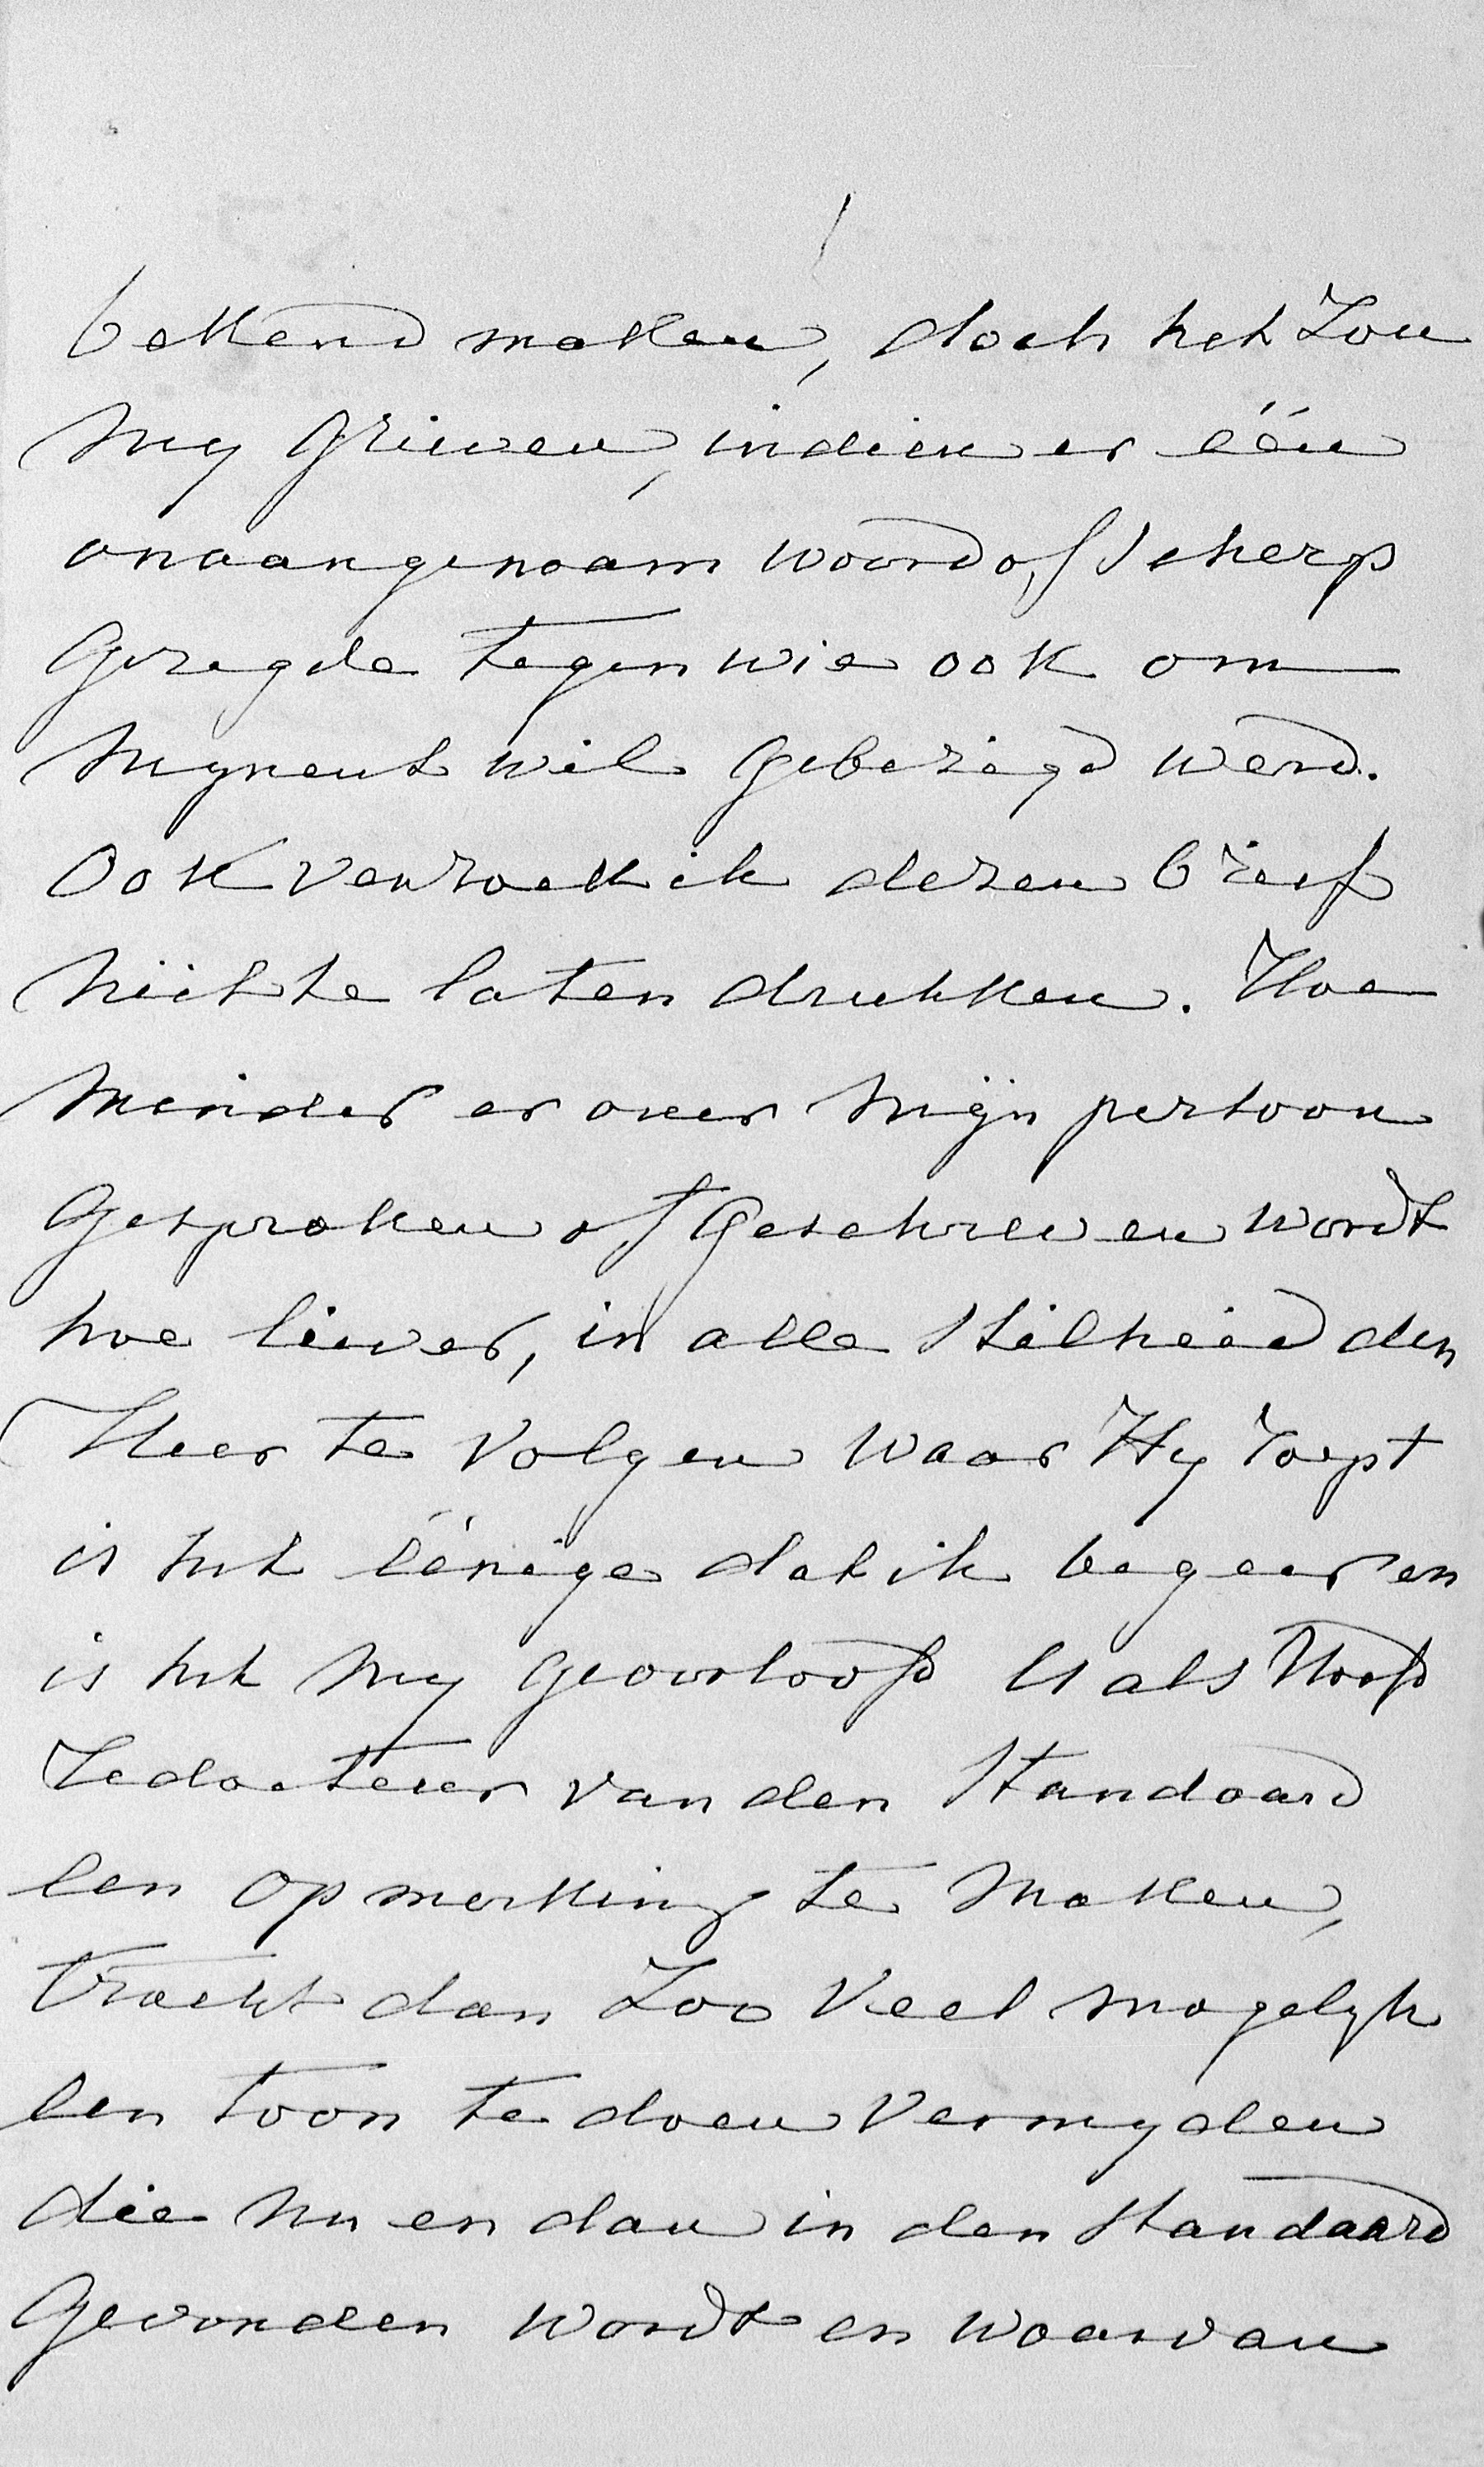 bekend maken, doch het zou
my grieven, indien er één
onaangenaam woord of scherp
gezegde tegen wie ook om
mynent wil gebezigd werd.
Ook verzoek ik dezen brief
niet te laten drukken. Hoe
minder er over mijn persoon
gesproken of geschreven wordt
hoe liever, in alle stilheid den
Heer te volgen waar Hy roept
is het éénige dat ik begeer en
is het my geoorloofd U als Hoofd
Redacteur van den Standaard
een opmerking te maken,
tracht dan zoo veel mogelyk
een toon te doen vermyden
die nu en dan in den Standaard
gevonden wordt en waarvan